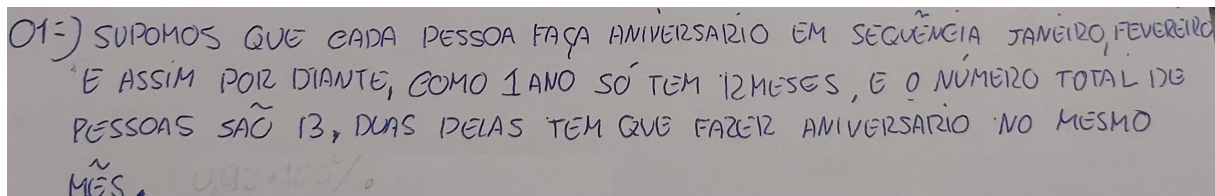 01=) SUPOMOS QUE CADA PESSOA FAÇA ANIVERSARIO EM SEQUÊNCIA JANEIRO, FEVEREIRO
E ASSIM POR DIANTE, COMO 1 ANO SÓ TEM 12 MESES, E O NÚMERO TOTAL DE
PESSOAS SÃO 13, DUAS DELAS TEM QUE FAZER ANIVERSÁRIO NO MESMO
MÊS. 0,92 • 100%